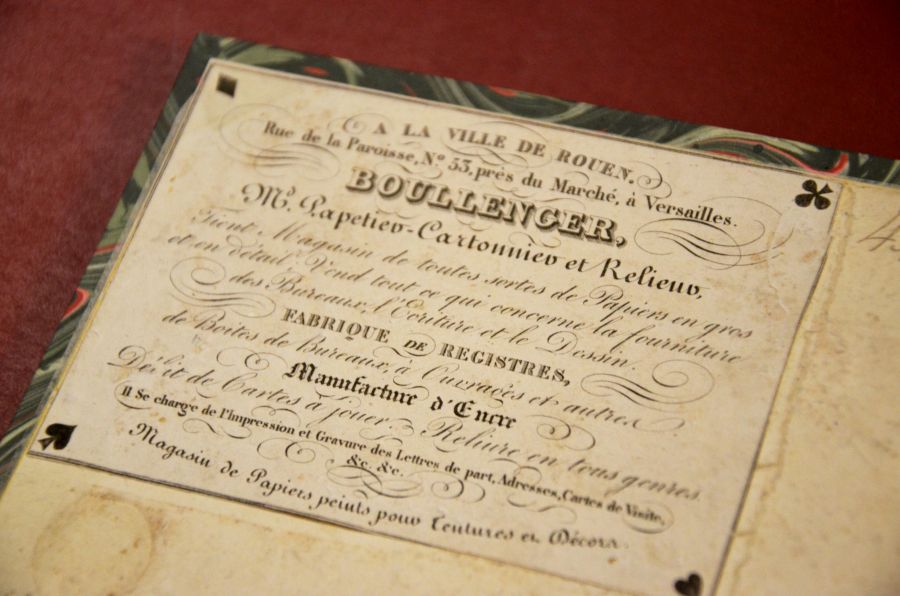 A LA VILLE DE ROUEN.
Rue de la Paroisse, N.º 53, près du Marché, à Versailles.
BOULLENGER,
M.d Papetier-Cartonnier et Relieur,
Tient Magasin de toutes sortes de Papiers en gros
et en détail, Vend tout ce qui concerne la fourniture
des Bureaux, l'Ecriture et le Dessin.
FABRIQUE DE REGISTRES,
de Boites de Bureaux, à Ouvrages et autres
Manufacture d'Encre
Dépôt de Cartes à jouer. Reliure en tous genres.
Il Se charge de l'Impression et Gravure des Lettres de part, Adresses, Cartes de Visite,
&c. &c.
Magasin de Papiers peints pour Tentures et Décors.